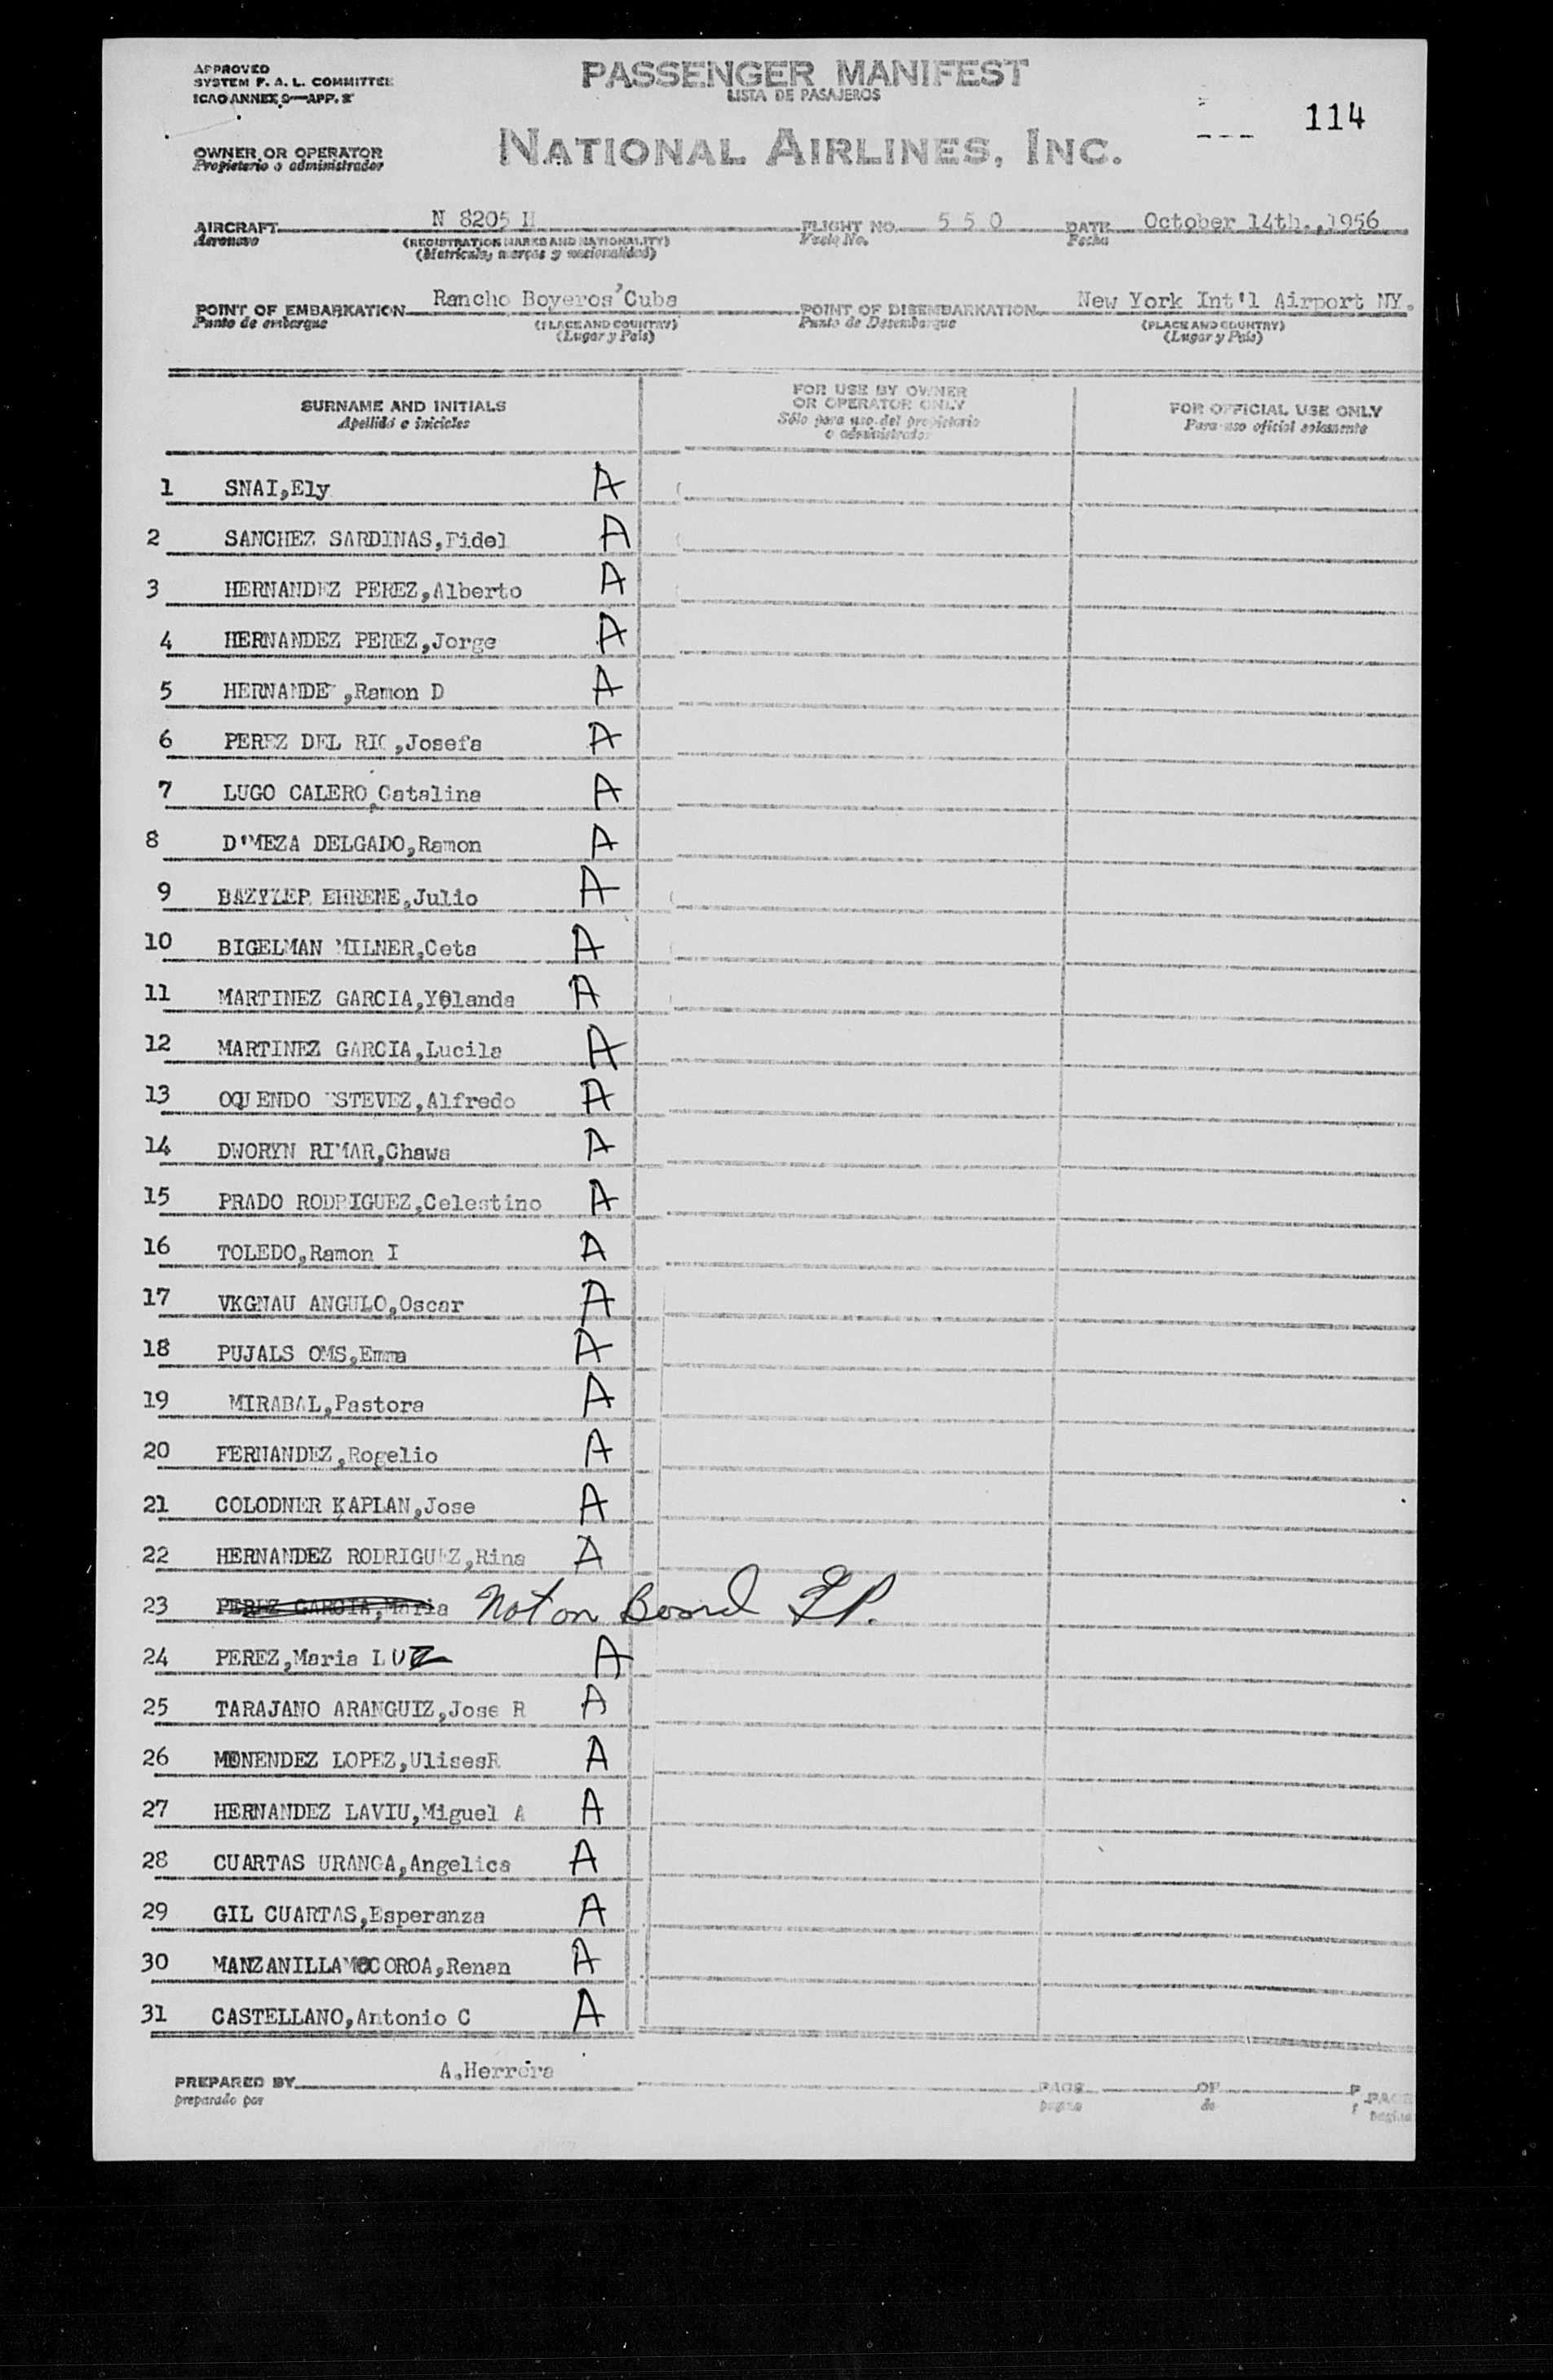 APPROVED
SYSTEM F. A. L. COMMITTEE
ICAO ANNEX 9—APP.
PASSENGER MANIFEST
LISTA DE PASAJEROS
114
OWNER OR OPERATOR
Propietario o administrador
NATIONAL AIRLINES, INC.
AIRCRAFT N 8205 H FLIGHT NO. 5 5 0 DATE October 14th.,1956
Aeronave (REGISTRATION MARKS AND NATIONALITY) Vuelo No. Fecha
(Matricula, marcas y nacionalidad)
POINT OF EMBARKATION Rancho Boyeros'Cuba POINT OF DISEMBARKATION New York Int'l Airport NY.
Punto de embarque (PLACE AND COUNTRY) Punto de Desembarque (PLACE AND COUNTRY)
(Lugar y Pais) (Lugar y Pais)
SURNAME AND INITIALS
Apellido e iniciales
FOR USE BY OWNER
OR OPERATOR ONLY
Sólo para uso del propietario
o administrador
FOR OFFICIAL USE ONLY
Para uso oficial solamente
1 SNAI,Ely A
2 SANCHEZ SARDINAS,Fidel A
3 HERNANDEZ PEREZ,Alberto A
4 HERNANDEZ PEREZ,Jorge A
5 HERNANDE ,Ramon D A
6 PEREZ DEL RIO,Josefa A
7 LUGO CALERO,Catalina A
8 D'MEZA DELGADO,Ramon A
9 EHRENE,Julio A
10 BIGELMAN MILNER,Ceta A
11 MARTINEZ GARCIA,Yolanda A
12 MARTINEZ GARCIA,Lucila A
13 OQUENDO ESTEVEZ,Alfredo A
14 DWORYN RIMAR,Chawa A
15 PRADO RODRIGUEZ,Celestino A
16 TOLEDO,Ramon I A
17 VKGNAU ANGULO,Oscar A
18 PUJALS OMS,Emma A
19 MIRABAL,Pastora A
20 FERNANDEZ,Rogelio A
21 COLODNER KAPLAN,Jose A
22 HERNANDEZ RODRIGUEZ,Rina A
23 PEREZ GARCIA,Maria Not on Board
24 PEREZ,Maria LUZ A
25 TARAJANO ARANGUIZ,Jose R A
26 MENENDEZ LOPEZ,UlisesR A
27 HERNANDEZ LAVIU,Miguel A A
28 CUARTAS URANGA,Angelica A
29 GIL CUARTAS,Esperanza A
30 MANZANILLAMOCOROA,Renan A
31 CASTELLANO,Antonio C A
PREPARED BY A.Herrera PAGE OF PAGE
preparado por pagina de pagina